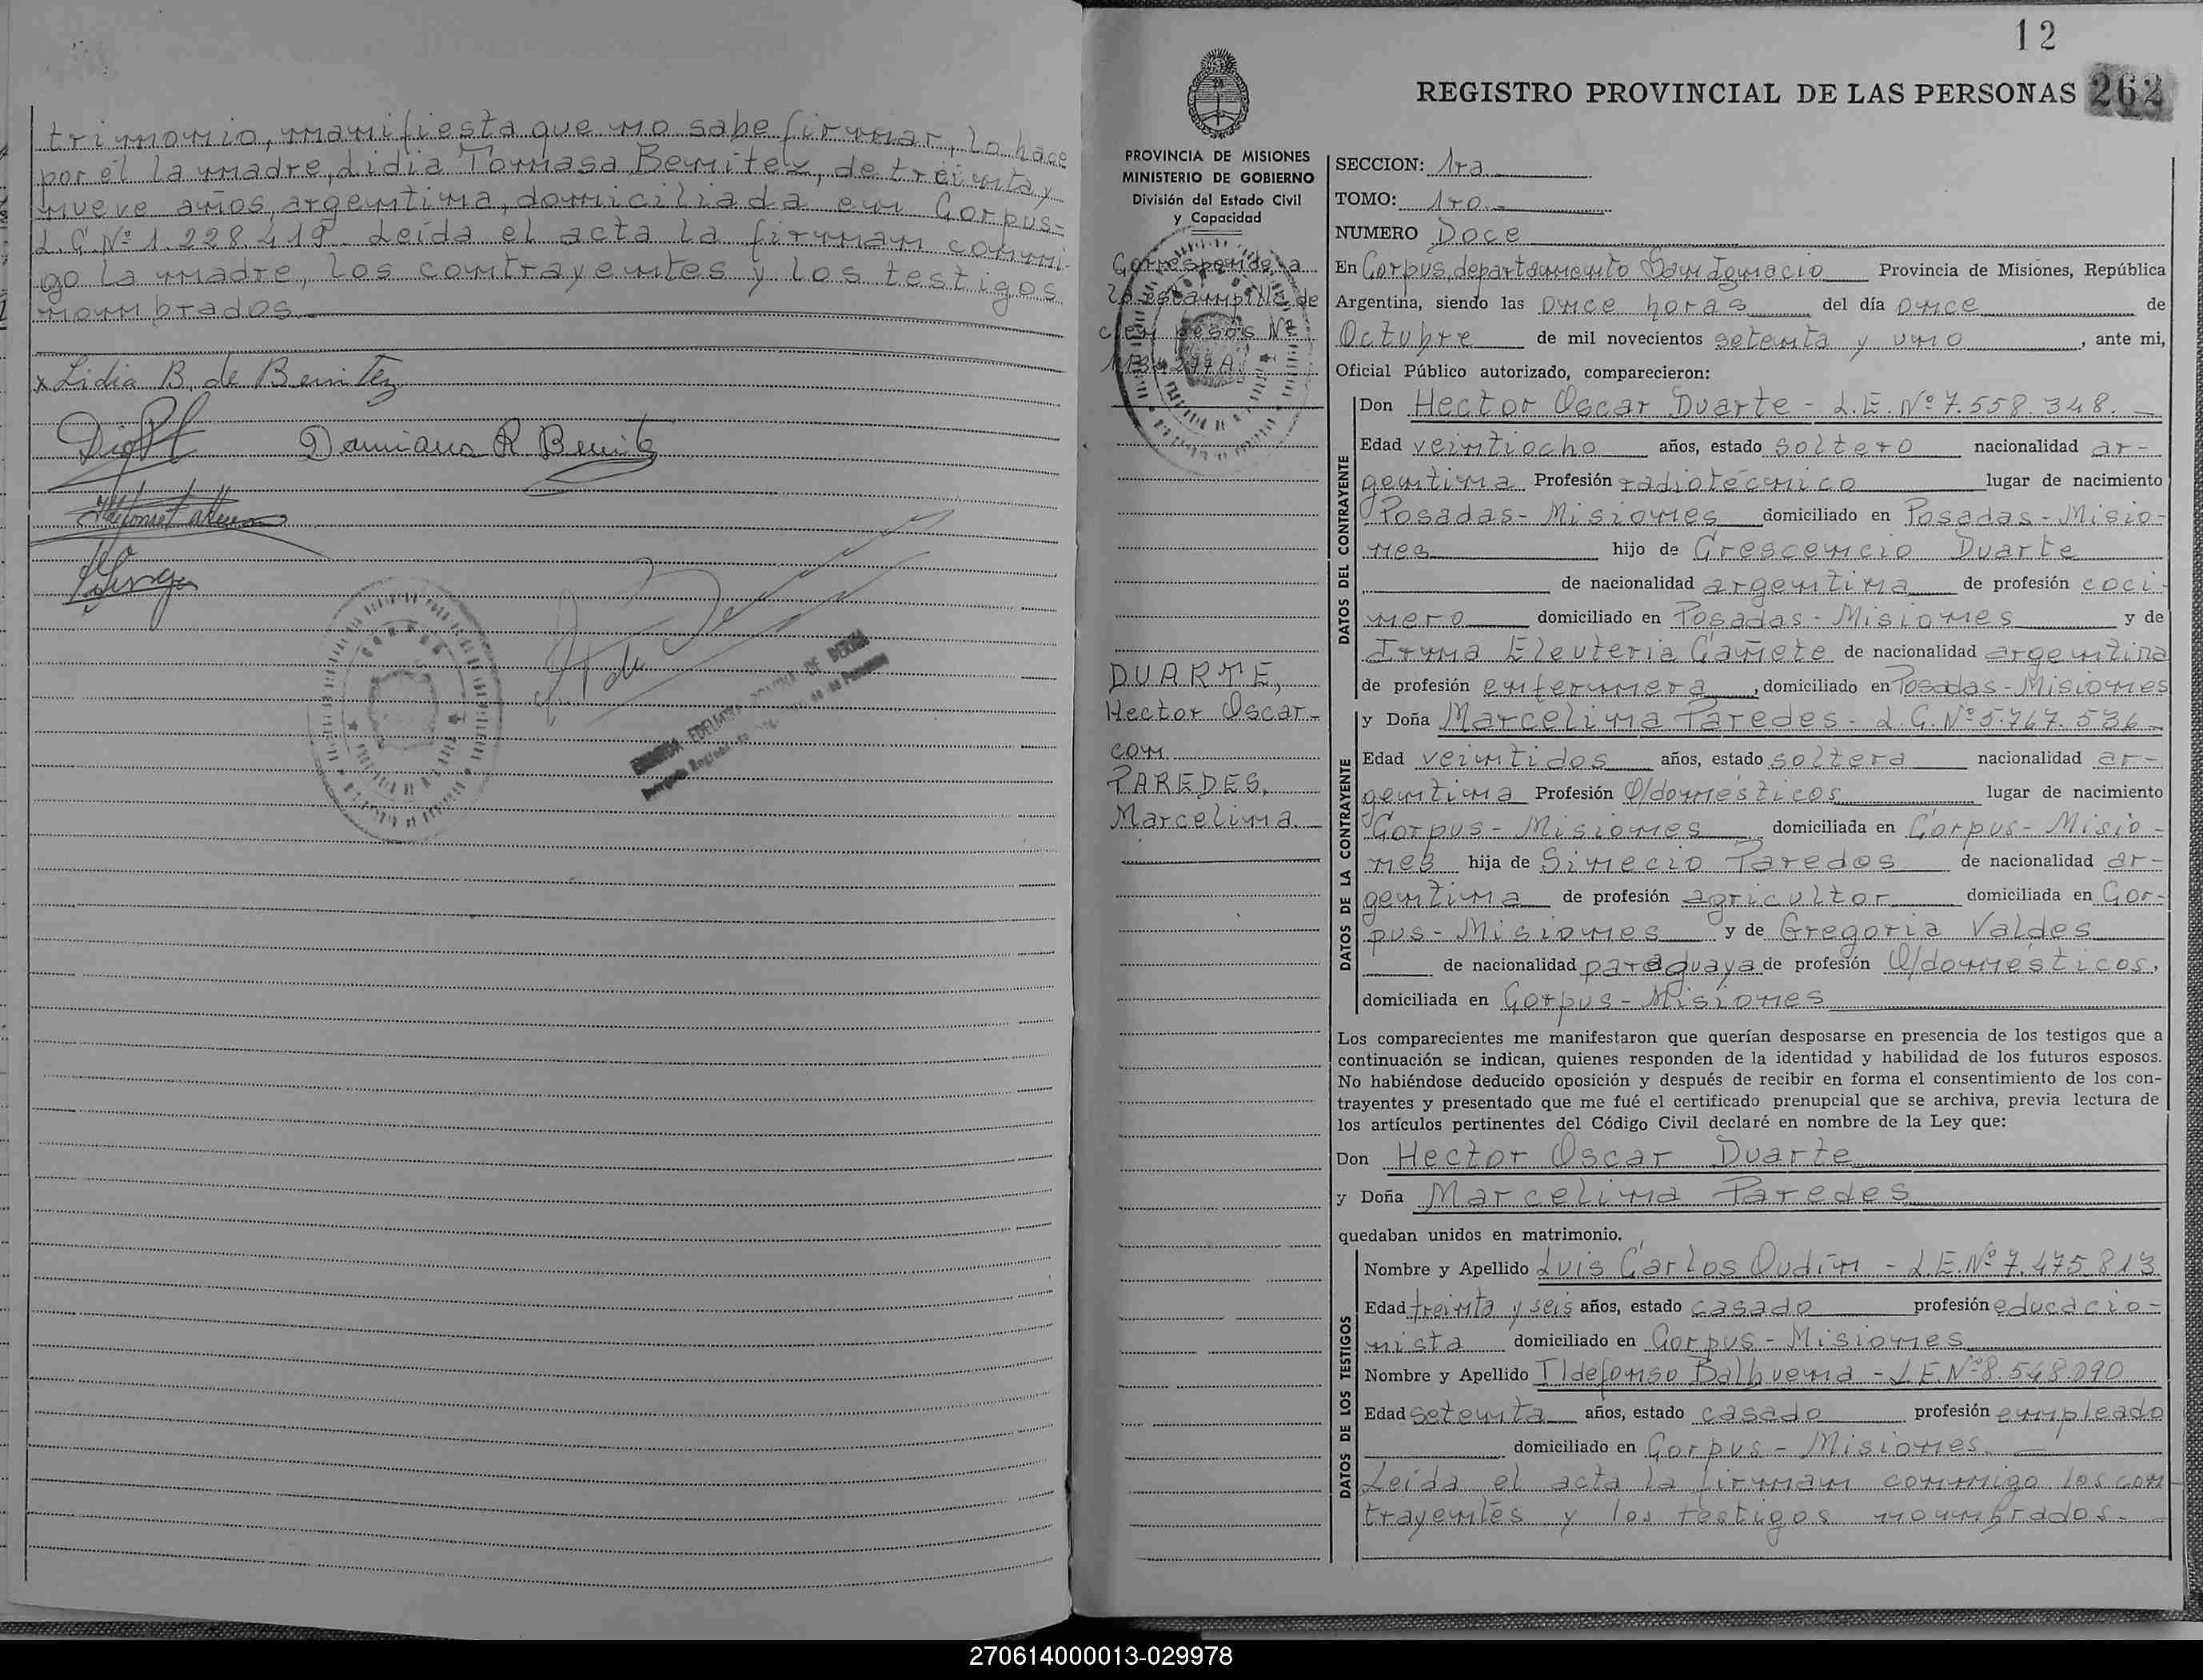 trimonio, manifiesta que no sabe firmar, lo hace
por él la madre, Lidia Tomasa Benitez, de treinta y
nueve años, argentina, domiciliada en Corpus-
L.C. Nº 1.228.419. Leída el acta la firman conmi-
go la madre, los contrayentes y los testigos
nombrados.
x Lidia B. de Benitez
Damiana R Benitez
12
REGISTRO PROVINCIAL DE LAS PERSONAS 262
PROVINCIA DE MISIONES
MINISTERIO DE GOBIERNO
División del Estado Civil
y Capacidad
Corresponde a
la estampilla de
cien pesos Nº
DUARTE,
Hector Oscar-
con
PAREDES,
Marcelina.
SECCION: 1ra.
TOMO: 1ro.-
NUMERO Doce
En Corpus, departamento San Ignacio Provincia de Misiones, República
Argentina, siendo las once horas del día once de
Octubre de mil novecientos setenta y uno, ante mi,
Oficial Público autorizado, comparecieron:
DATOS DEL CONTRAYENTE
Don Hector Oscar Duarte - L.E. Nº 7.558.348.
Edad veintiocho años, estado soltero nacionalidad ar-
gentina Profesión radiotécnico lugar de nacimiento
Posadas- Misiones domiciliado en Posadas - Misio-
nes hijo de Crescencio Duarte
de nacionalidad argentina de profesión coci-
nero domiciliado en Posadas - Misiones y de
Irma Eleuteria Cañete de nacionalidad argentina
de profesión enfermera, domiciliado en Posadas-Misiones
DATOS DE LA CONTRAYENTE
y Doña Marcelina Paredes - L.C. Nº 5.767.536
Edad veintidos años, estado soltera nacionalidad ar-
gentina Profesión Q/domésticos lugar de nacimiento
Corpus - Misiones domiciliada en Corpus - Misio-
nes hija de Sinecio Paredos de nacionalidad ar-
gentina de profesión agricultor domiciliada en Cor-
pus - Misiones y de Gregoria Valdes
de nacionalidad paraguaya de profesión Q/domesticos,
domiciliada en Corpus - Misiones
Los comparecientes me manifestaron que querían desposarse en presencia de los testigos que a
continuación se indican, quienes responden de la identidad y habilidad de los futuros esposos.
No habiéndose deducido oposición y después de recibir en forma el consentimiento de los con-
trayentes y presentado que me fué el certificado prenupcial que se archiva, previa lectura de
los artículos pertinentes del Código Civil declaré en nombre de la Ley que:
Don Hector Oscar Duarte
y Doña Marcelina Paredes
quedaban unidos en matrimonio.
DATOS DE LOS TESTIGOS
Nombre y Apellido Luis Carlos Oudín - L.E. Nº 7.475.813
Edad treinta y seis años, estado casado profesión educacio-
nista domiciliado en Corpus - Misiones
Nombre y Apellido Ildefonso Balbuena - L.E. Nº 8.548.090
Edad setenta años, estado casado profesión empleado
domiciliado en Corpus - Misiones.
Leída el acta la firman conmigo los con
trayentes y los testigos nombrados.-
270614000013-029978